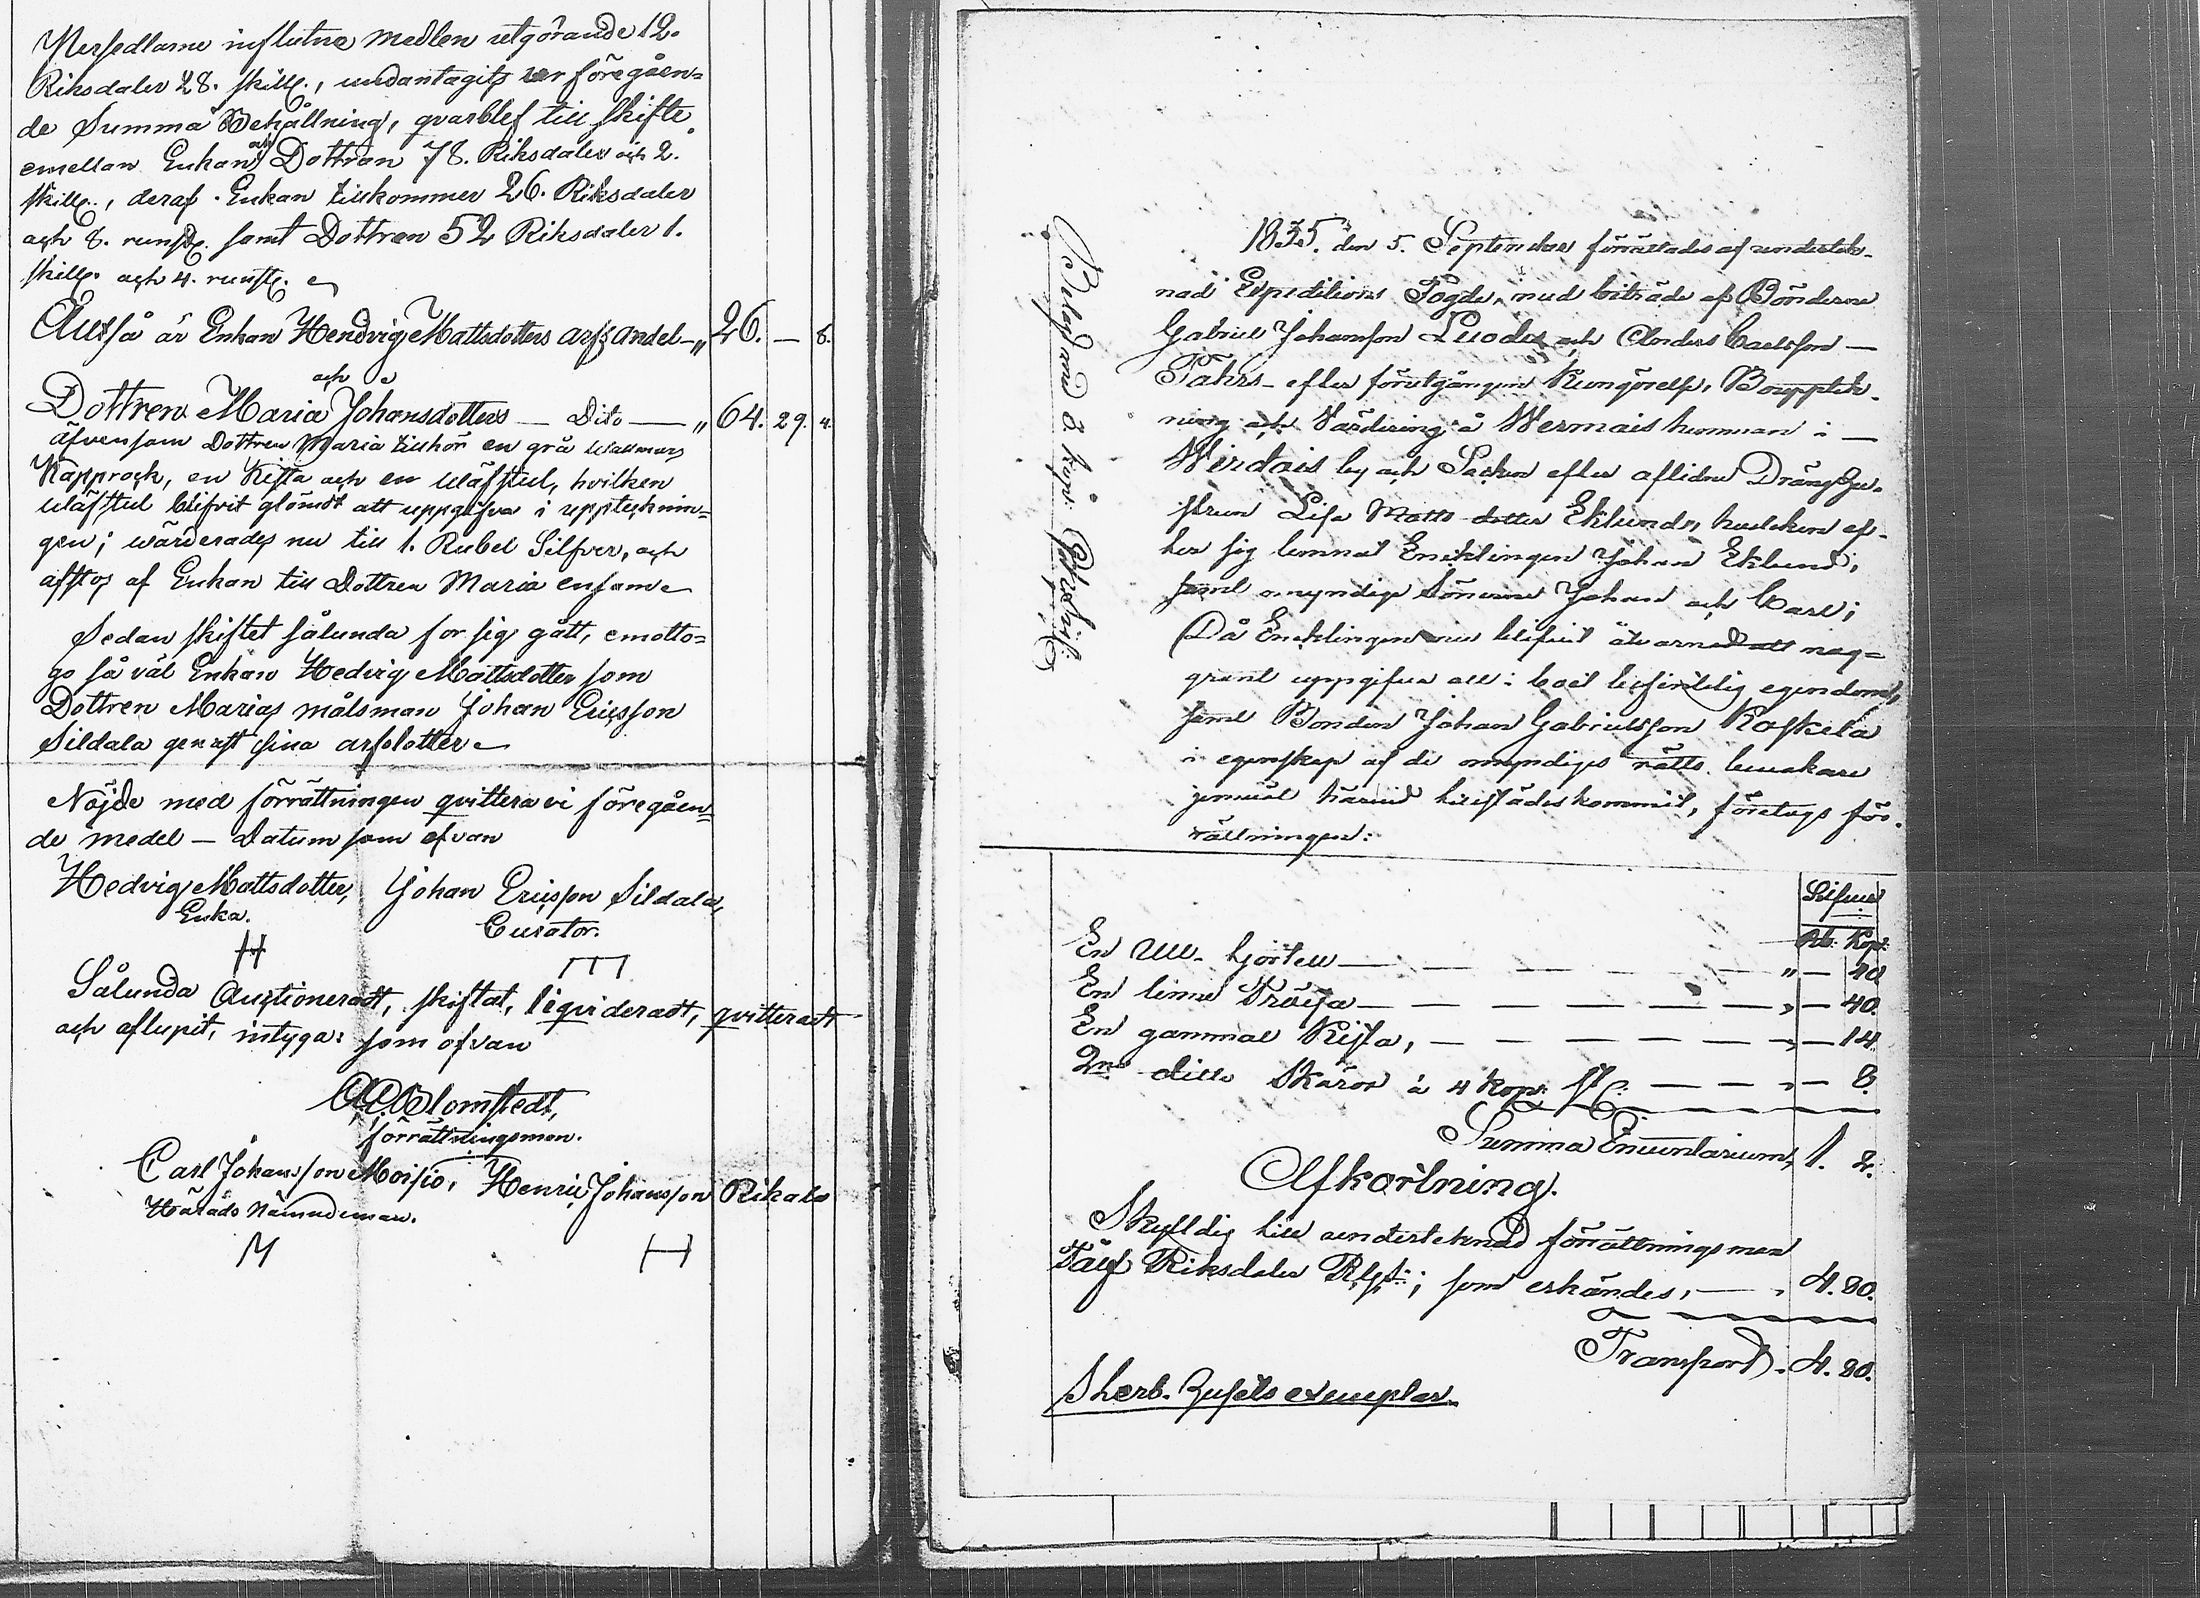 Persedlarne influtne medlen utgörande 12.
Riksdaler 28. skillg., undantagits ur föregåen=
de Summa Behållning, qvarblef till skifte
emellan Enkan och Dottran 78. Riksdaler och 2.
skillg., deraf Enkan tillkommer 26. Riksdaler
och 8. runst. samt Dottren 52 Riksdaler 1.
skillg. och 4. runst.
Altså är Enkan Hendvig Mattsdotters arfs andel — " 26. — 8.
och
Dottren Maria Johansdotters — Dito — " 64. 29. 4.
äfvensom Dottren Maria tillhör en grå wallmars
Kapprock, en Kista och en wäfstul, hvilken
wäfstul blifvit glömdt att uppgifva i uppteknin=
gen; wärderades nu till 1. Rubel Silfver, och
afstos af Enkan till Dottren Maria ensam
Sedan skiftet sålunda for sig gått, emotto=
go så väl Enkan Hedvig Mattsdotter som
Dottren Marias målsman Johan Ericsson
Sildala genast sina arfslotter
Nöjde med förrättningen qvittera vi föregåen=
de medel — Datum som ofvan
Hedvig Mattsdotter, Johan Ericsson Sildala,
Enka. Curator.
H
Sålunda Auctioneradt, skiftat, liqvideradt, qvitteradt
och aflupit, intyga: som ofvan
Blomstedt,
förrättningsman.
Carl Johansson Moisio, Henric Johansson Rikala
Härads Nämndeman.
M H
1835. den 5. September förrättades af undertek-
nad Expeditions Fogde, med biträde af Bönderne
Gabriel Johansson Luode och Anders Carlsson —
Fahrs — efter förutgången Kungörelse, Bouptek-
ning och Värdering å Wermais hemman i —
Wirdois by och Socken efter aflidne Dräng Hu-
strun Lisa Matts dotter Eklund, hvilcken ef-
ter sig lemnat Encklingen Johan Eklund,
samt omyndige Sönerne Johan och Carl;
Då Encklingen nu blifvit åtvarnad att nog=
grant uppgifva all i boet befintlig egendom,
samt Bonden Johan Gabrielsson Koskela
i egenskap af de omyndiges rätts bevakare
jemväl härvid tillstädeskommit, företogs för-
rättningen:
Silfver
Rb. Kop.
En Ull kjortell — " — 40
En linne Tröija — " — 40.
En gammal Kista, — " — 14.
2ne ditto Skäror à 4 Kop. st. — " — 8.
Summa Inventarium, 1. 2.
Afkortning.
Skyldig till undertecknad förrättningsman
Tålf Riksdaler Rgs.; som erkändes, — 4. 80.
Transport. 4. 80.
Sterb. husets exemplar.